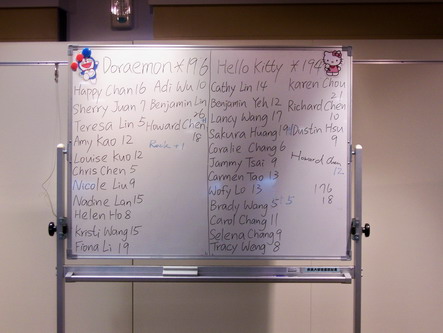 Doraemon *196
Happy Chan 16 Adi Wu 10
Sherry Juan 7 Benjamin Lin
26
Teresa Lin 5 Howard Chen
18
Amy Kao 12
Louise Kuo 12
Chris Chen 5
Nicole Liu 9
Nadine Lan 15
Helen Ho 8
Kristi Wang 15
Fiona Li 19
Hello Kitty *194
Cathy Lin 14 Karen Chou
21
Benjamin Yeh 12 Richard Chen
10
Lancy Wang 17
Sakura Huang 19 Dustin Hsu
9
Coralie Chang 6
Jammy Tsai 9 Howard Chen
12
Carmen Tao 13
Wofy Lo 13 176
18
Brady Wang 5 5
Carol Chang 11
Selena Chang 9
Tracy Wong 8